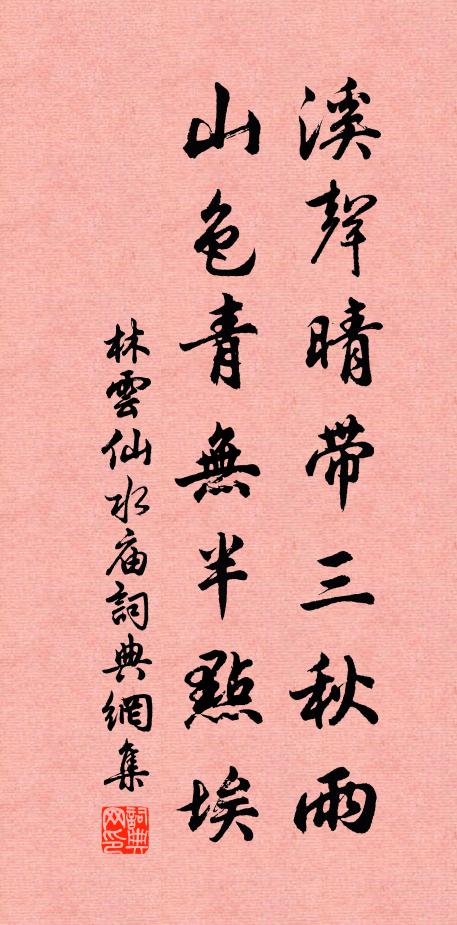 溪聲晴帶三秋雨
山色青無半點埃
林雲仙水庙詞典網集
詞典网印